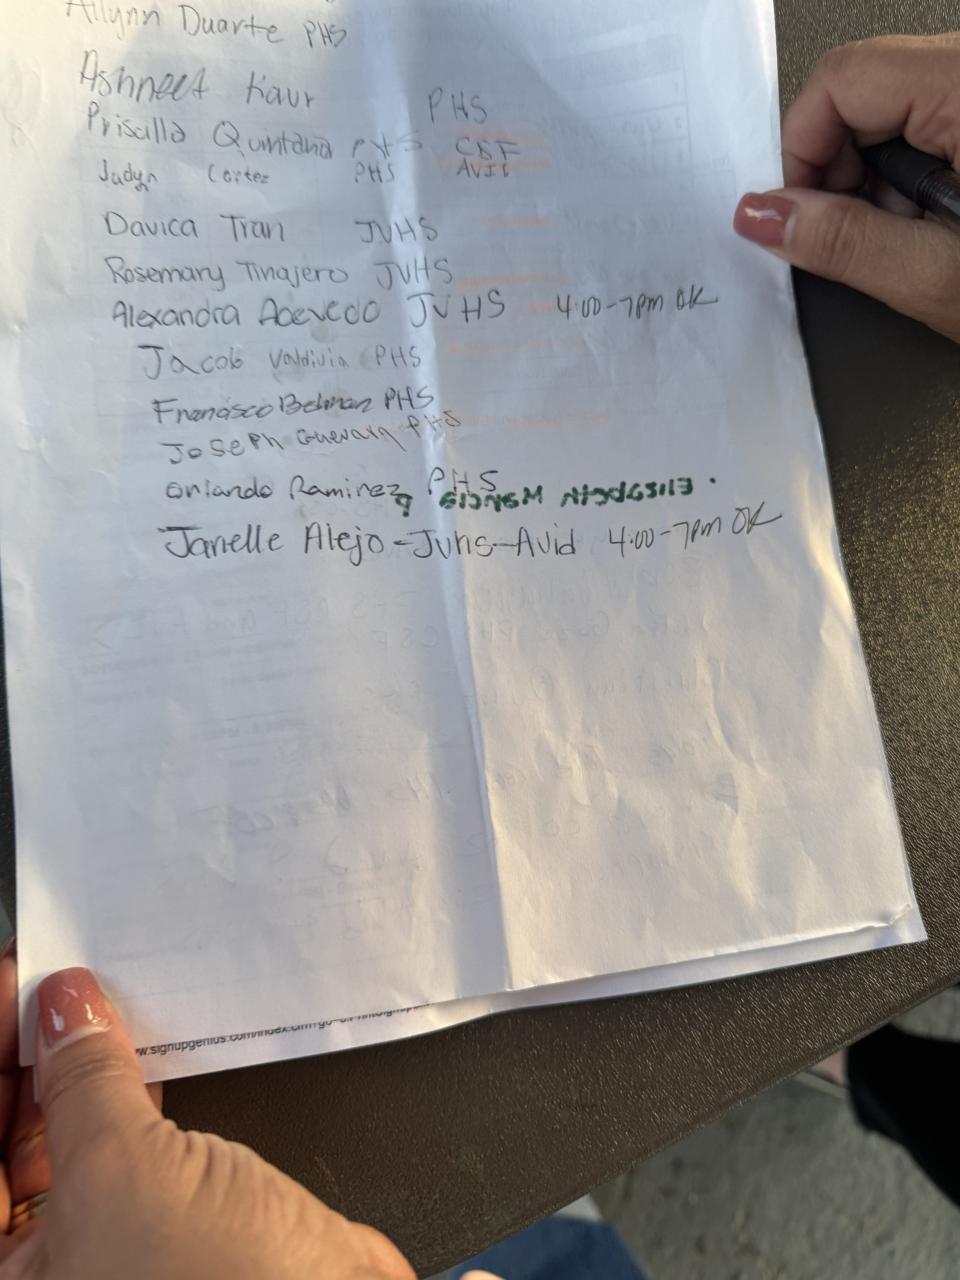 Allynn Duarte PHS
Ashneet Kaur PHS
Priscilla Quintana PHS CSF
Judyn Cortez PHS AVID
Davica Tran JVHS
Rosemary Tinajero JVHS
Alexandra Acevedo JVHS 4:00-7pm OK
Jacob Valdivia PHS
Francisco Belman PHS
Joseph Guevara PHS
Orlando Raminez PHS
Janelle Alejo-Jvhs-Avid 4:00-7pm OK